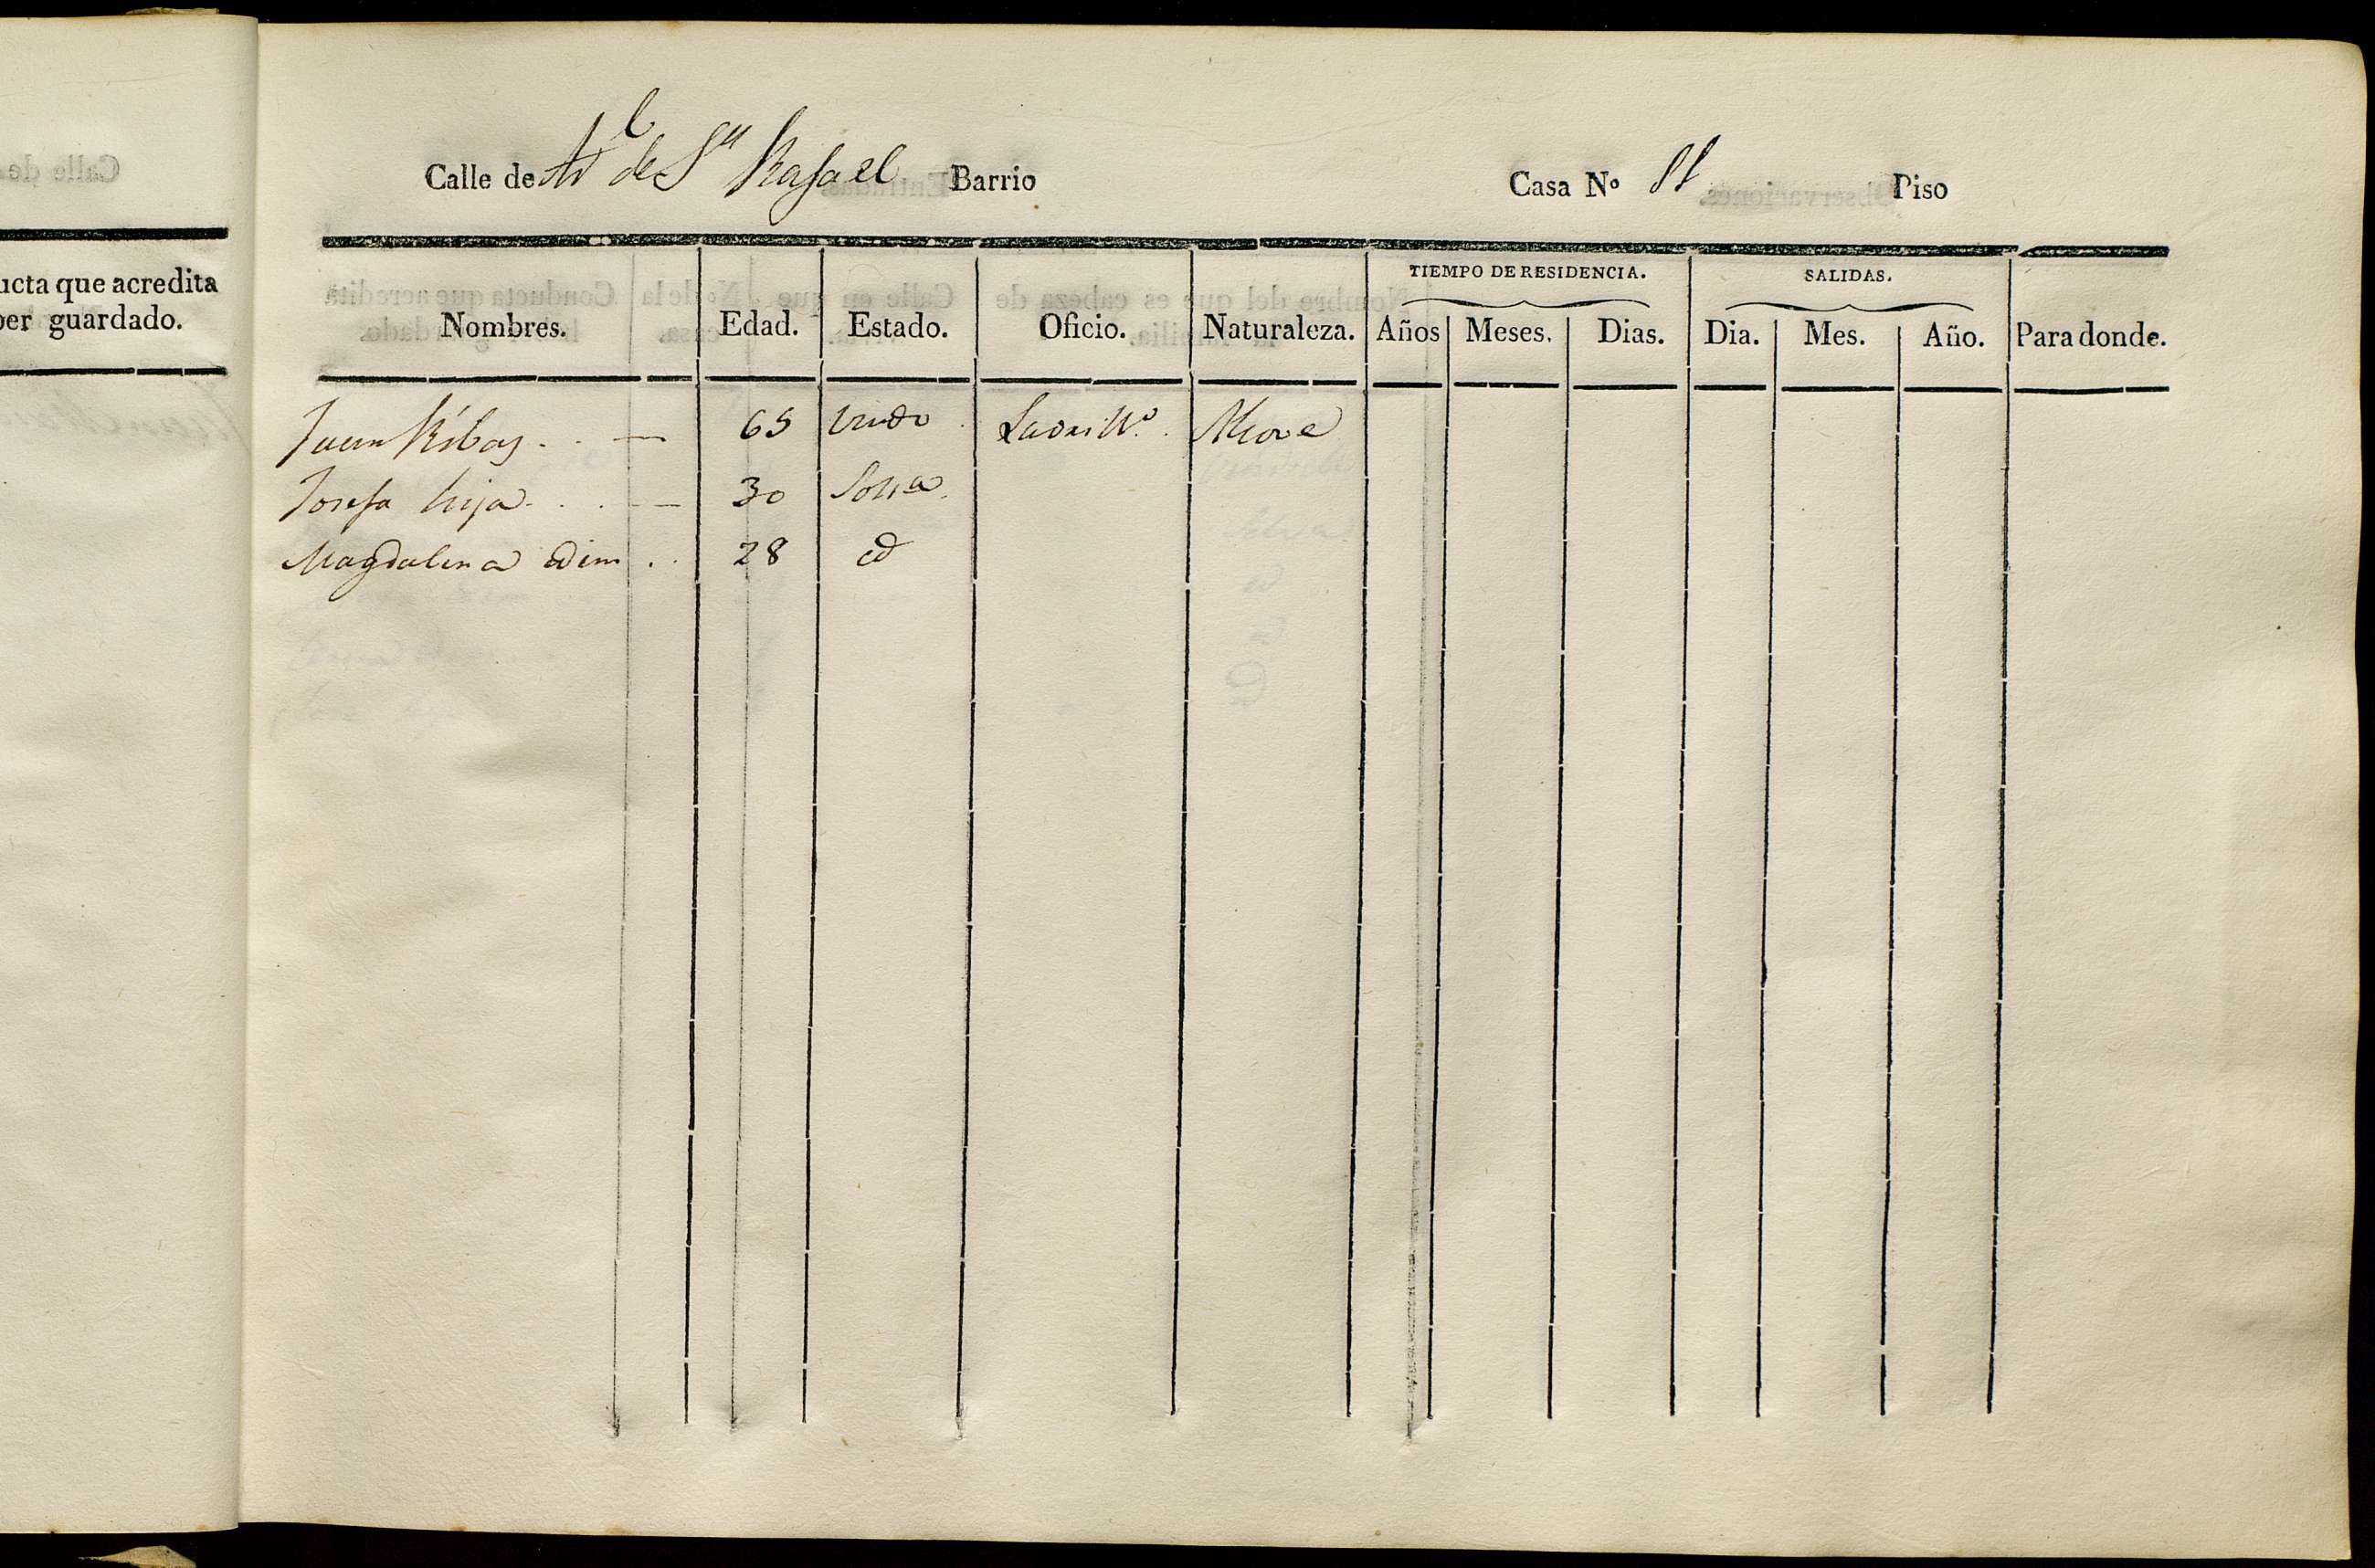 Calle de
ucta que acredita
ber guardado.
Calle de Arl de Sn Rafael Barrio Casa No Piso
TIEMPO DE RESIDENCIA. SALIDAS.
Nombres. Edad. Estado. Oficio. Naturaleza. Años Meses. Dias. Dia. Mes. Año. Para donde.
Juan Ribas 65 Viudo Ladrillo.
Josefa hija 30 Solta.
Magdalena idem 28 id